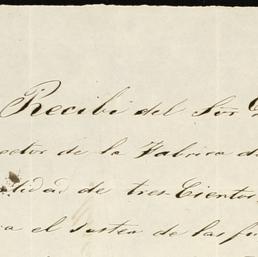 Recibi del Sor
ector de la Fabrica d
tidad de tres Cientos
a el susten de las fu